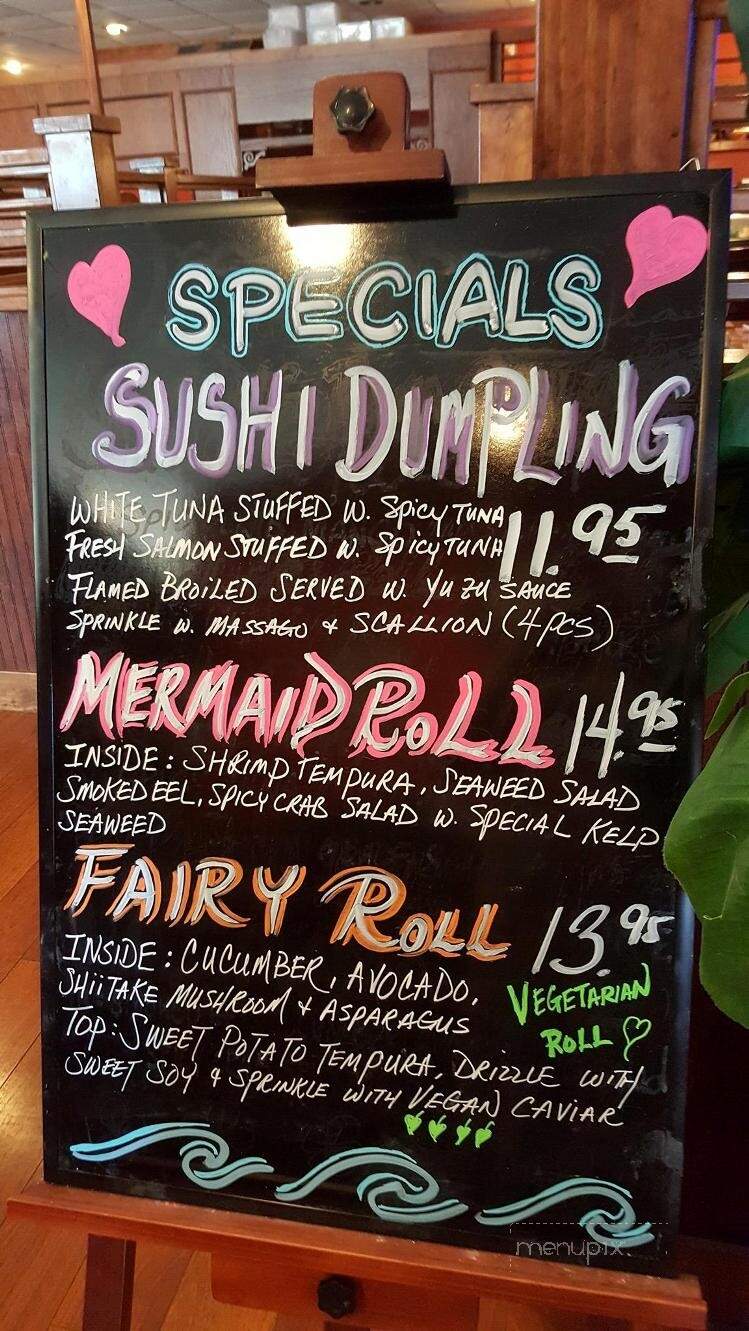 SPECIALS
SUSHI DUMPLING
WHITE TUNA STUFFED W. Spicy TUNA
FRESH SALMON STUFFED W. SpicyTUNA 11.95
FLAMED BROILED SERVED W. YUZU SAUCE
SPRINKLE W. MASSAGO & SCALLION (4pcs)
MERMAID ROLL 14.95
INSIDE: SHRIMP TEMPURA, SEAWEED SALAD
SMOKED EEL, SPICY CRAB SALAD W. SPECIAL KELP
SEAWEED
FAIRY ROLL 13.95
INSIDE: CUCUMBER, AVOCADO,
SHiiTAKE MUSHROOM & ASPARAGUS
VEGETARIAN
ROLL
TOP: SWEET POTATO TEMPURA, DRIZZLE WITH
SWEET SOY & SPRINKLE WITH VEGAN CAVIAR
menupix